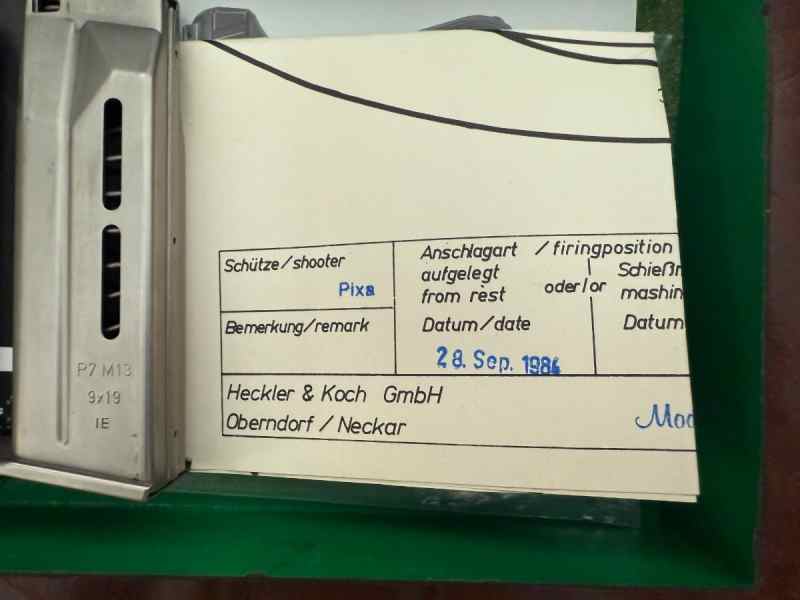 P7 M13
9x19
IE
Schütze/shooter
Pixa
Bemerkung/remark
Anschlagart / firingposition
aufgelegt
from rest
oder/or
Schießm
mashin
Datum/date
28. Sep. 1984
Datum
Heckler & Koch GmbH
Oberndorf / Neckar
Mod